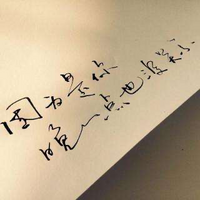 因为是你
晚一点也没关系